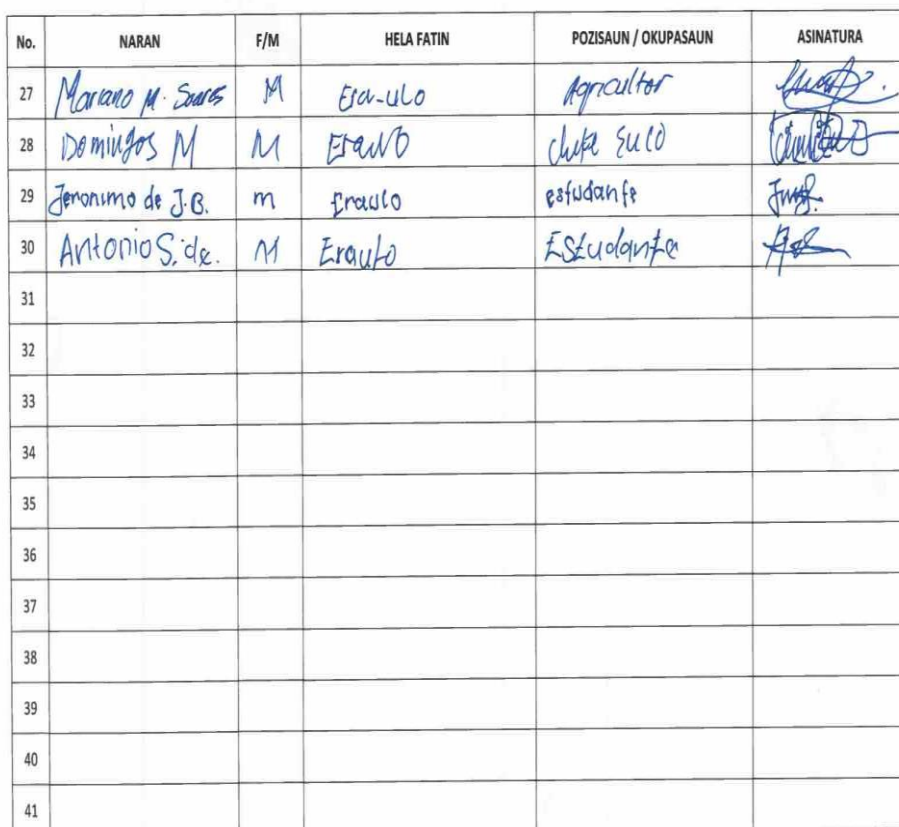 No. NARAN F/M HELA FATIN POZISAUN / OKUPASAUN ASINATURA
27 Mariano M. Soares M Era-ulo Agricultor
28 Domingos M M Eraulo Chefe Suco
29 Jeronimo de J.B. m Eraulo estudante
30 Antonio S. de. M Eraulo Estudante
31
32
33
34
35
36
37
38
39
40
41